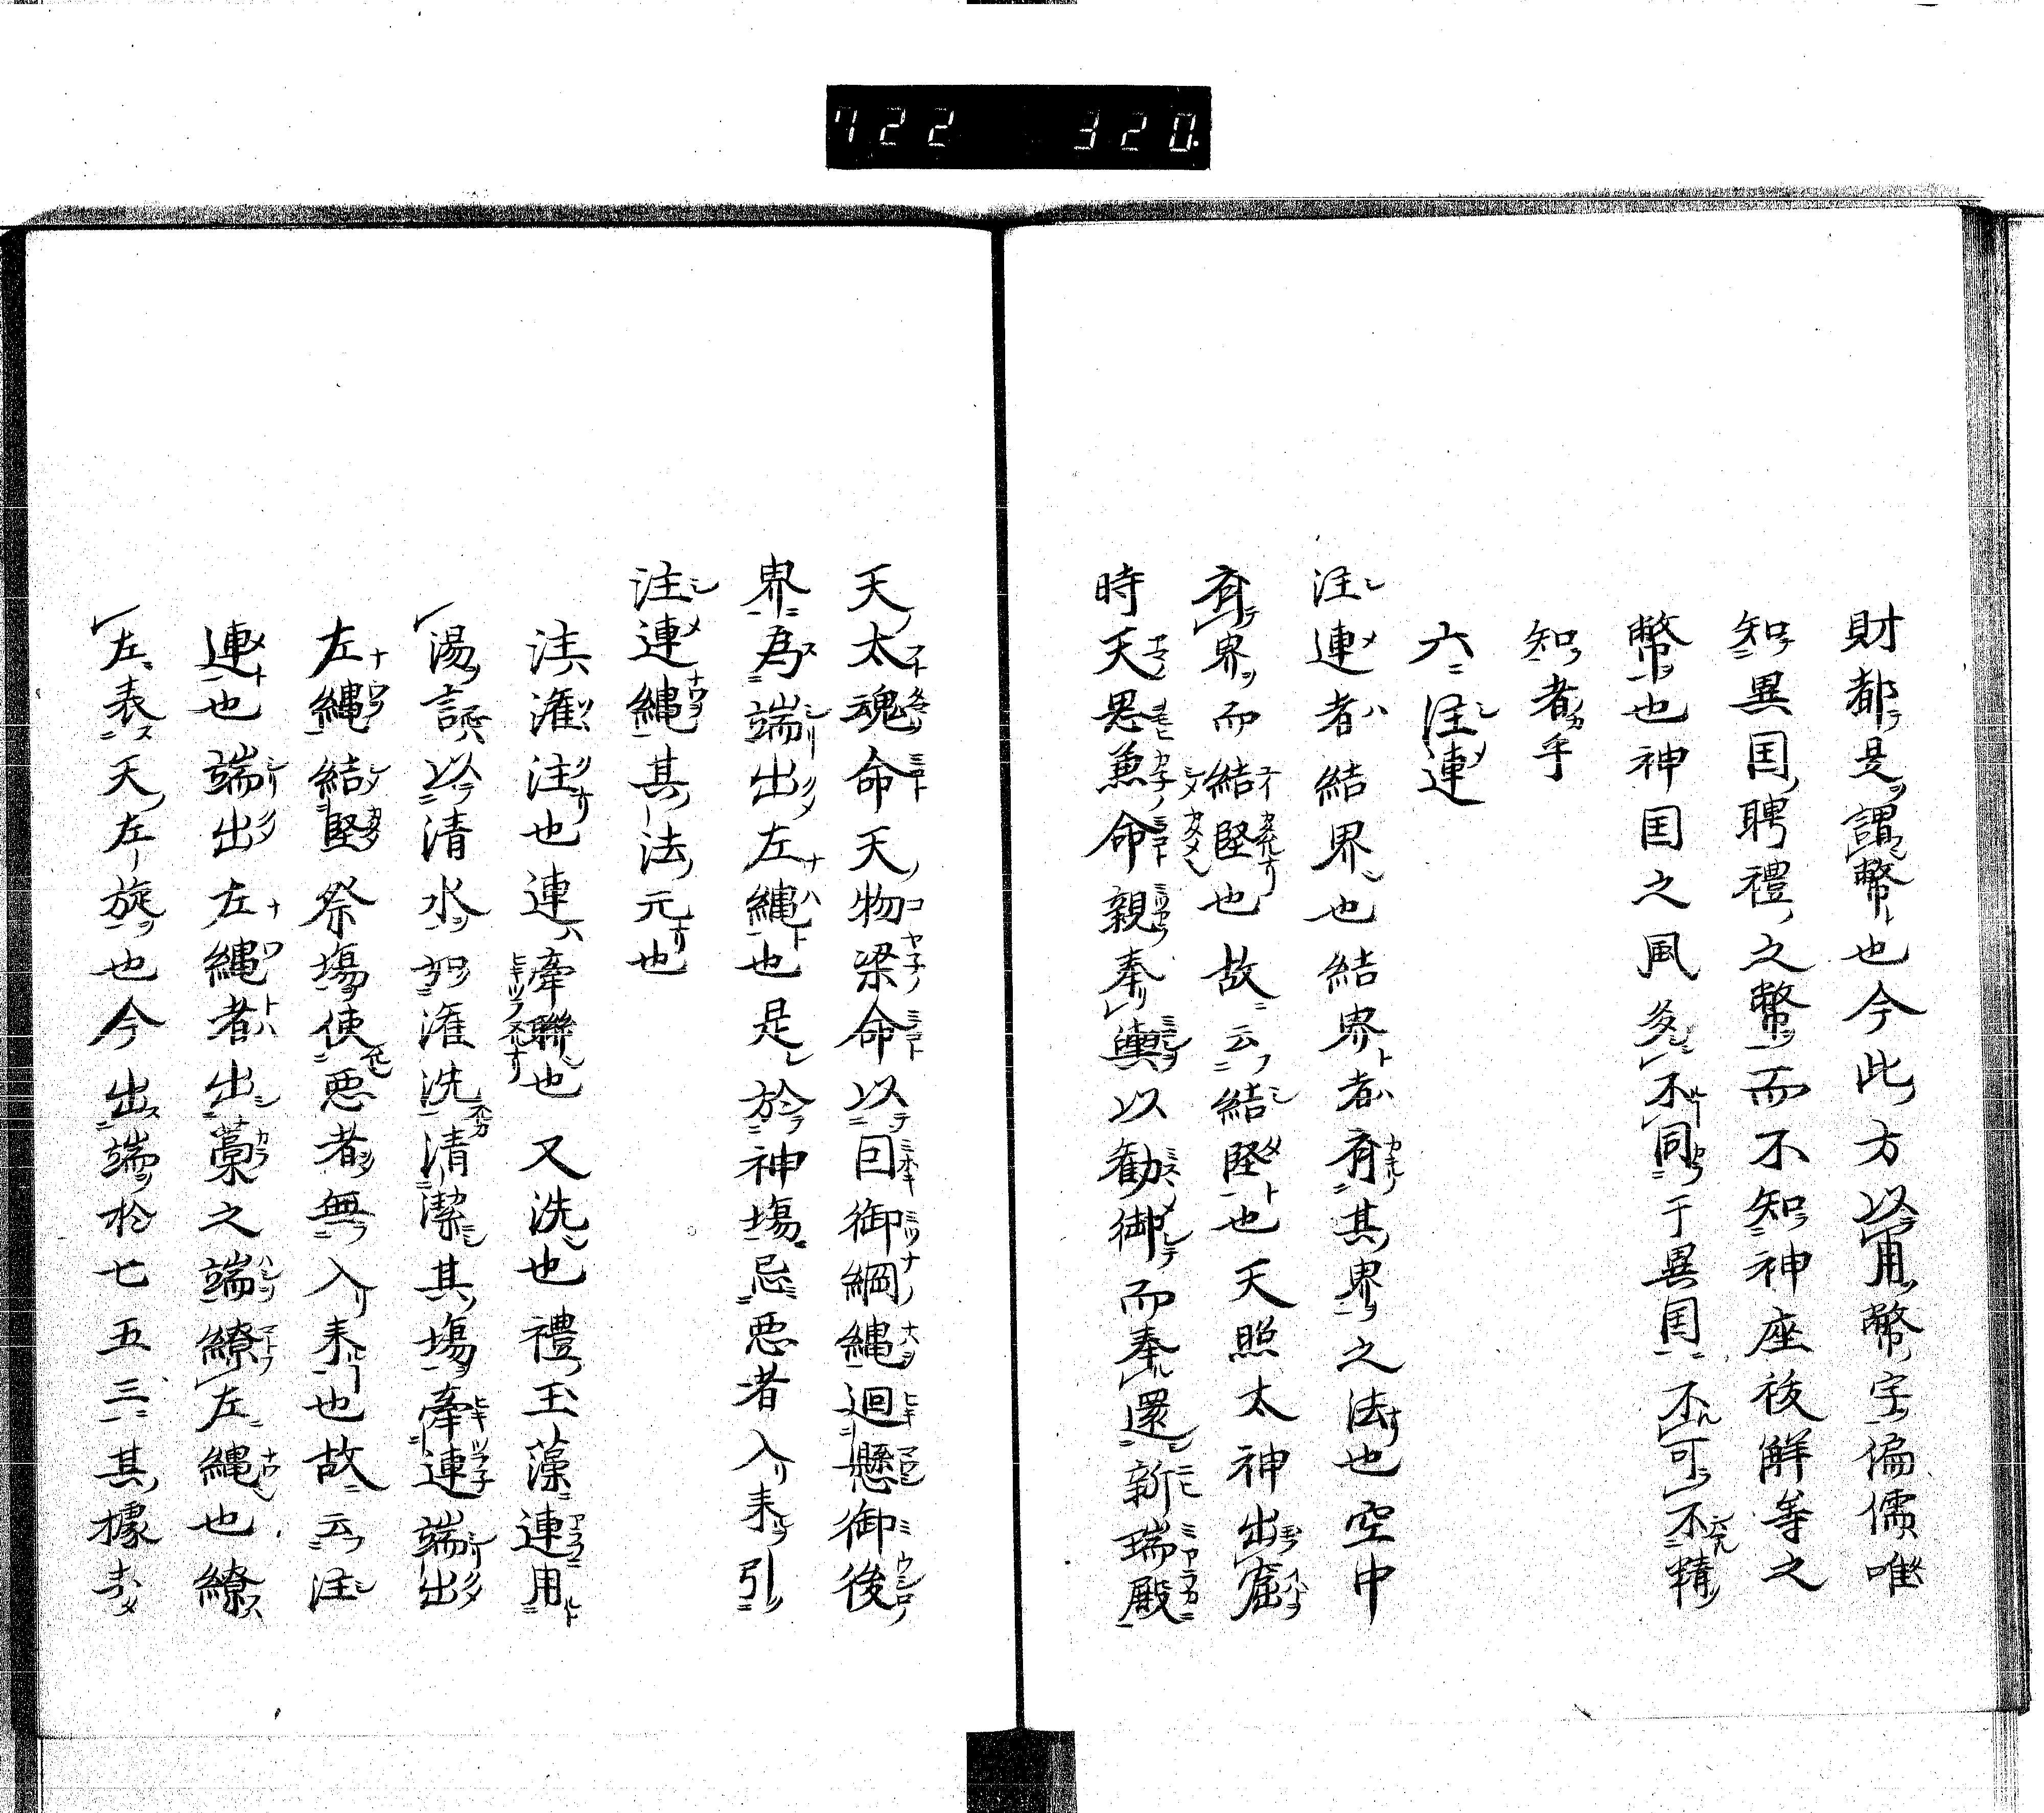 722 320
財都是謂幣也今此方以用幣字偏儒唯
知異国聘禮之幣而不知神座祓解等之
幣也神国之風多不同于異国不可不精
知者乎
六注連
注連者結界也結界者有其界之法也空中
有界而結堅也故云結堅也天照太神出窟
時天思兼命親奉輿以勧御而奉還新瑞殿
天太魂命天物梁命以回御綱縄迴懸御後
界為端出左縄也是於神場忌悪者入来引
注連縄其法元也
注灌注也連牽聯也又洗也禮玉藻連用
湯誤以清水如灌洗清潔其場牽連端出
左縄結堅祭場使悪者無入来也故云注
連也端出左縄者出藁之端繚左縄也繚
左表天左旋也今出端於七五三其據